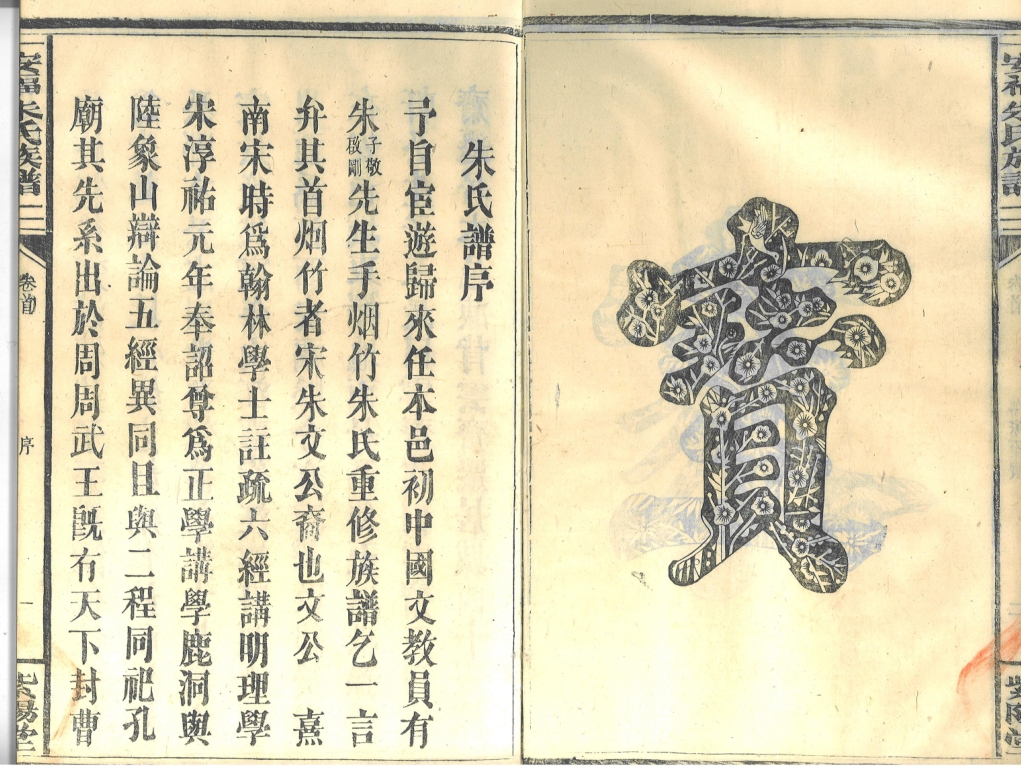 寶
安福朱氏族譜
朱氏譜序
予自宦遊歸來任本邑初中國文教員有
朱子敬啟剛先生手烟竹朱氏重修族譜乞一言
弁其首烟竹者宋朱文公裔也文公 熹
南宋時爲翰林學士註疏六經講明理學
宋淳祐元年奉詔尊爲正學講學鹿洞與
陸象山辯論五經異同且與二程同祀孔
廟其先系出於周周武王旣有天下封曹
安福朱氏族譜
卷首
序
一
紫陽堂